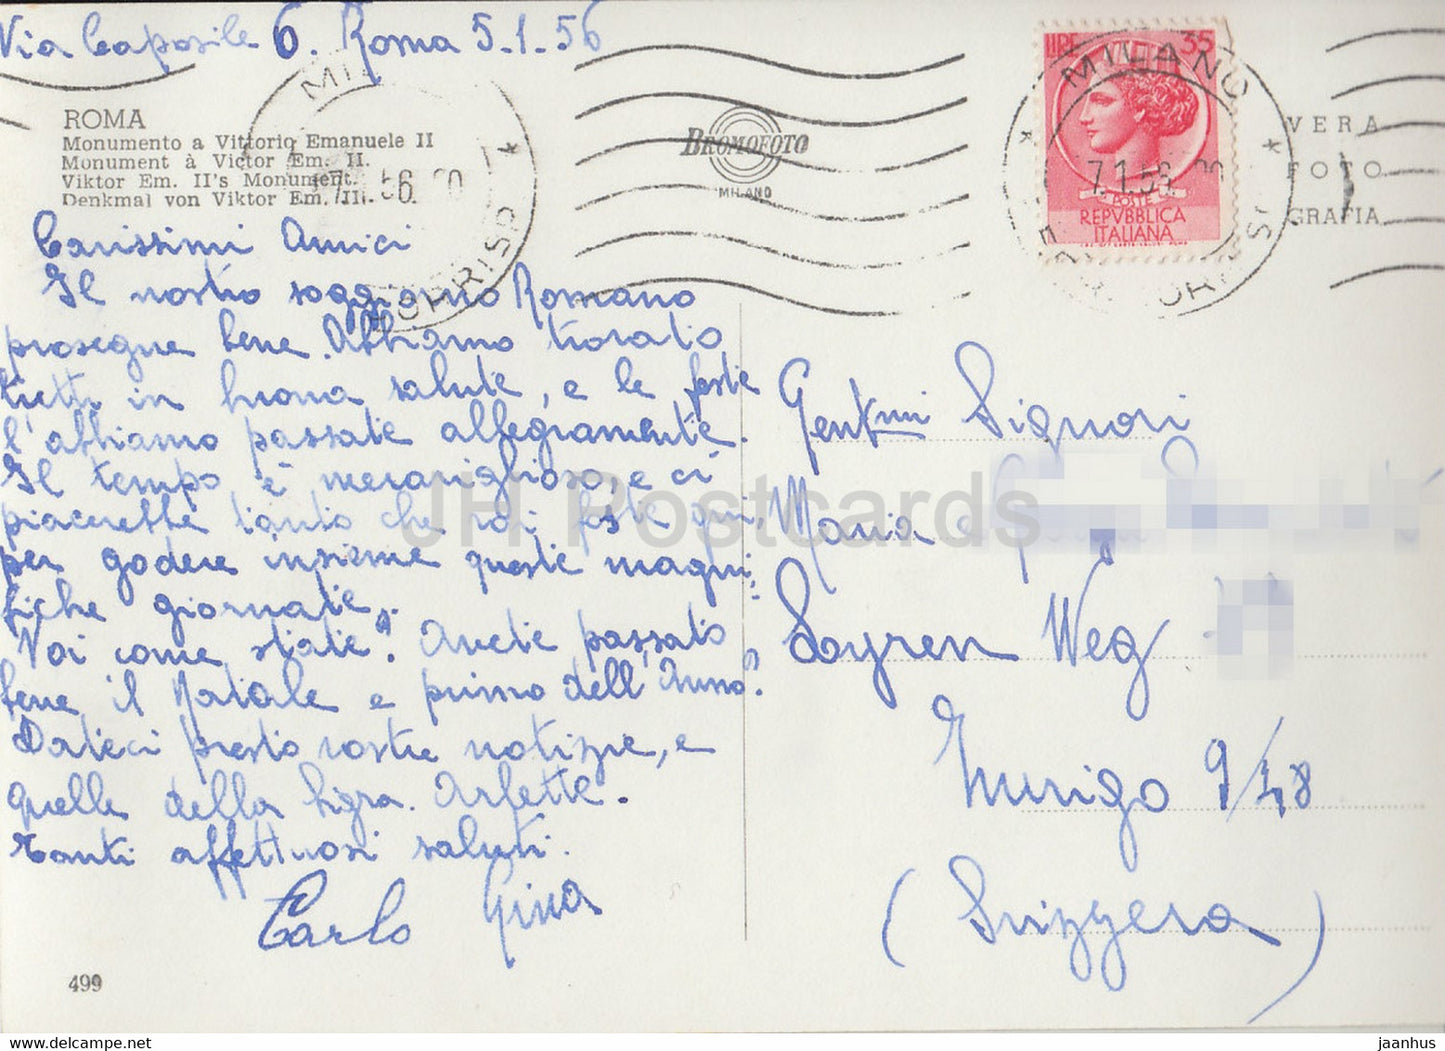 Via Caposile 6. Roma 5-1-56
ROMA
Monumento a Vittorio Emanuele II
Monument à Victor Em. II.
Viktor Em. II's Monument.
Denkmal von Viktor Em. II.
BROMOFOTO
MILANO
MILANO
CORRISP
7.1.56
LIRE 35
POSTE
REPVBBLICA
ITALIANA
MILANO
7.1.56
VERA
FOTO
GRAFIA
Carissimi Amici
Il nostro soggiorno Romano
prosegue bene. Abbiamo trovato
tutti in buona salute, e le feste
l'abbiamo passate allegramente.
Il tempo è meraviglioso, e ci
piacerebbe tanto che voi foste qui,
per godere insieme queste magni
fiche giornate.
Voi come state? Avete passato
bene il Natale e primo dell'Anno?
Dateci presto vostre notizie, e
quelle della Sigra. Arfette.
Tanti affettuosi saluti.
Carlo Gina
Gentmi Signori
Maria e
Weg
Zurigo 9/48
(Svizzera)
499
JH Postcards
jaanhus